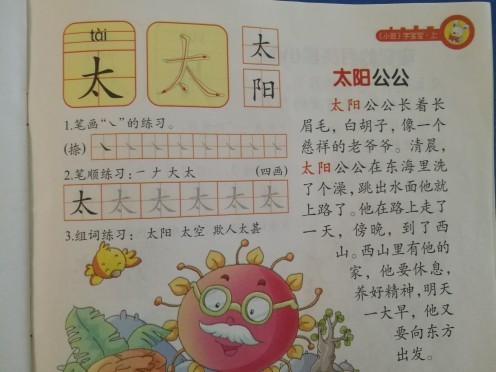 《小班》字宝宝·上
tài
太
太
太
阳
1.笔画“㇏”的练习。
(捺) ㇏
2.笔顺练习：一 ナ 大 太 (四画)
太 太 太 太 太 太
3.组词练习： 太阳 太空 欺人太甚
太阳公公
太阳公公长着长
眉毛，白胡子，像一个
慈祥的老爷爷。清晨，
太阳公公在东海里洗
了个澡，跳出水面他就
上路了。他在路上走了
一天，傍晚，到了西
山。西山里有他的
家，他要休息，
养好精神，明天
一大早，他又
要向东方
出发。